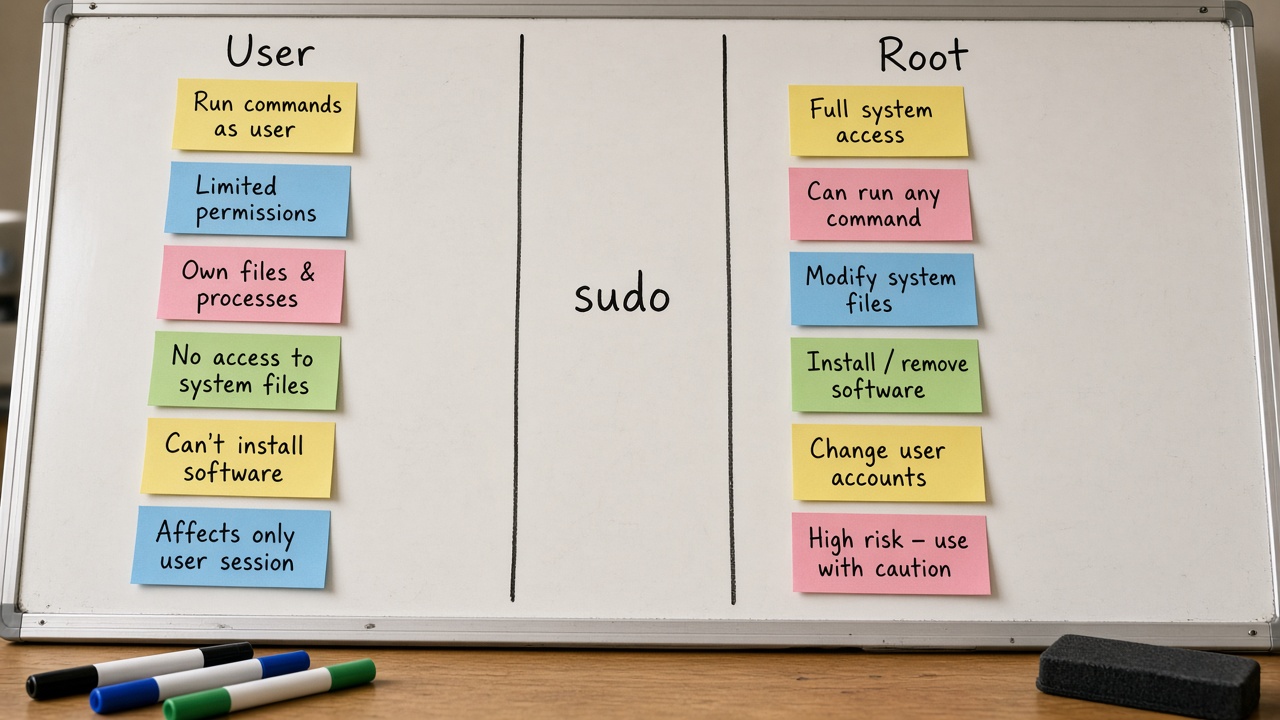 User
Run commands
as user
Limited
permissions
Own files &
processes
No access to
system files
Can't install
software
Affects only
user session
sudo
Root
Full system
access
Can run any
command
Modify system
files
Install / remove
software
Change user
accounts
High risk – use
with caution